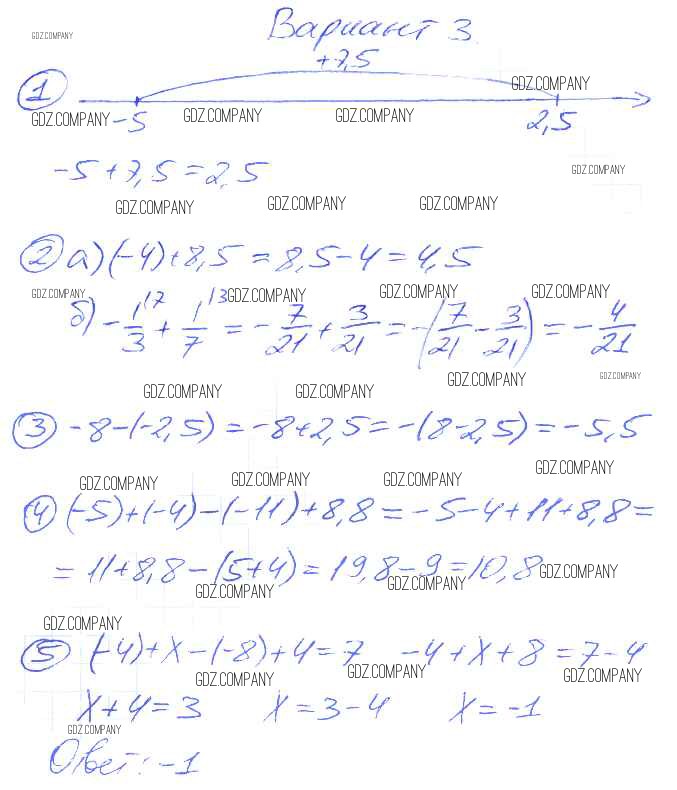 Вариант 3
GDZ.COMPANY
+7,5
1
GDZ.COMPANY
GDZ.COMPANY -5 GDZ.COMPANY GDZ.COMPANY 2,5
-5+7,5=2,5 GDZ.COMPANY
GDZ.COMPANY GDZ.COMPANY GDZ.COMPANY
2 а) (-4)+8,5=8,5-4=4,5
GDZ.COMPANY GDZ.COMPANY GDZ.COMPANY GDZ.COMPANY
б) -1/3 \7 + 1/7 \3 = -7/21 + 3/21 = -(7/21 - 3/21) = -4/21
GDZ.COMPANY GDZ.COMPANY GDZ.COMPANY GDZ.COMPANY
3 -8-(-2,5)=-8+2,5=-(8-2,5)=-5,5
GDZ.COMPANY GDZ.COMPANY GDZ.COMPANY GDZ.COMPANY
4 (-5)+(-4)-(-11)+8,8=-5-4+11+8,8=
=11+8,8-(5+4)=19,8-9=10,8 GDZ.COMPANY
GDZ.COMPANY GDZ.COMPANY
GDZ.COMPANY
5 (-4)+x-(-8)+4=7 -4+x+8=7-4
GDZ.COMPANY GDZ.COMPANY GDZ.COMPANY
x+4=3 x=3-4 x=-1
GDZ.COMPANY
Ответ: -1